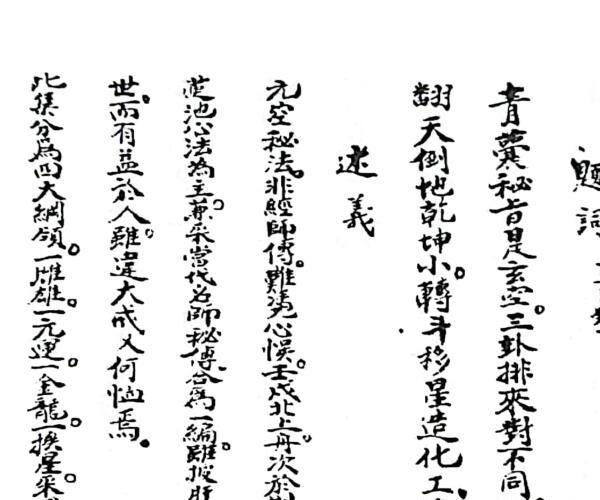 題詞
青囊秘旨是玄空。三卦排來對不同
翻天倒地乾坤小。轉斗移星造化工
述義
元空秘法。非經師傳。難凭心悞。壬戌北上舟次於
蓮池心法為主。兼采當代名師秘傳。合為一編。雖披肝
世。而有益於人。雖違大戒又何恤焉。
此集分為四大綱領。一雌雄。一元運。一金龍。一挨星。采